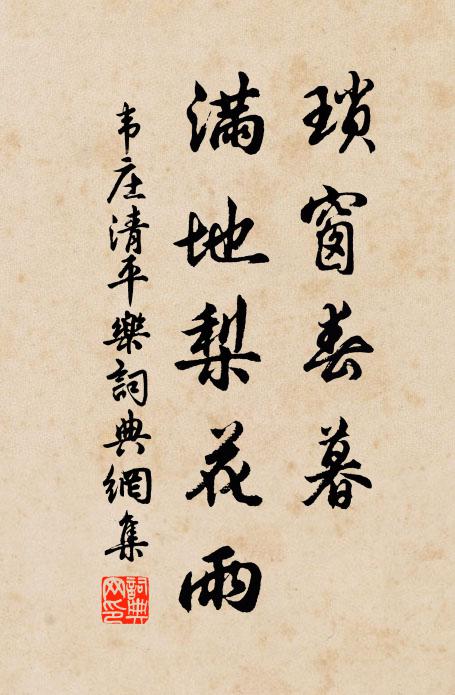 瑣窗春暮
滿地梨花雨
韦庄清平樂詞典網集
詞典網印